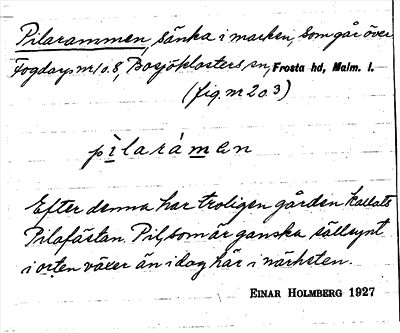 Pilarammen, sänka i marken, som går över
Fogdarp nr 1 o. 8, Bosjöklosters sn, Frosta hd, Malm. l.
(fig. nr 2 o. 3)
pilaramen
Efter denna har troligen gården kallats
Pilafästan. Pil, som är ganska sällsynt
i orten växer än idag här i närheten.
EINAR HOLMBERG 1927